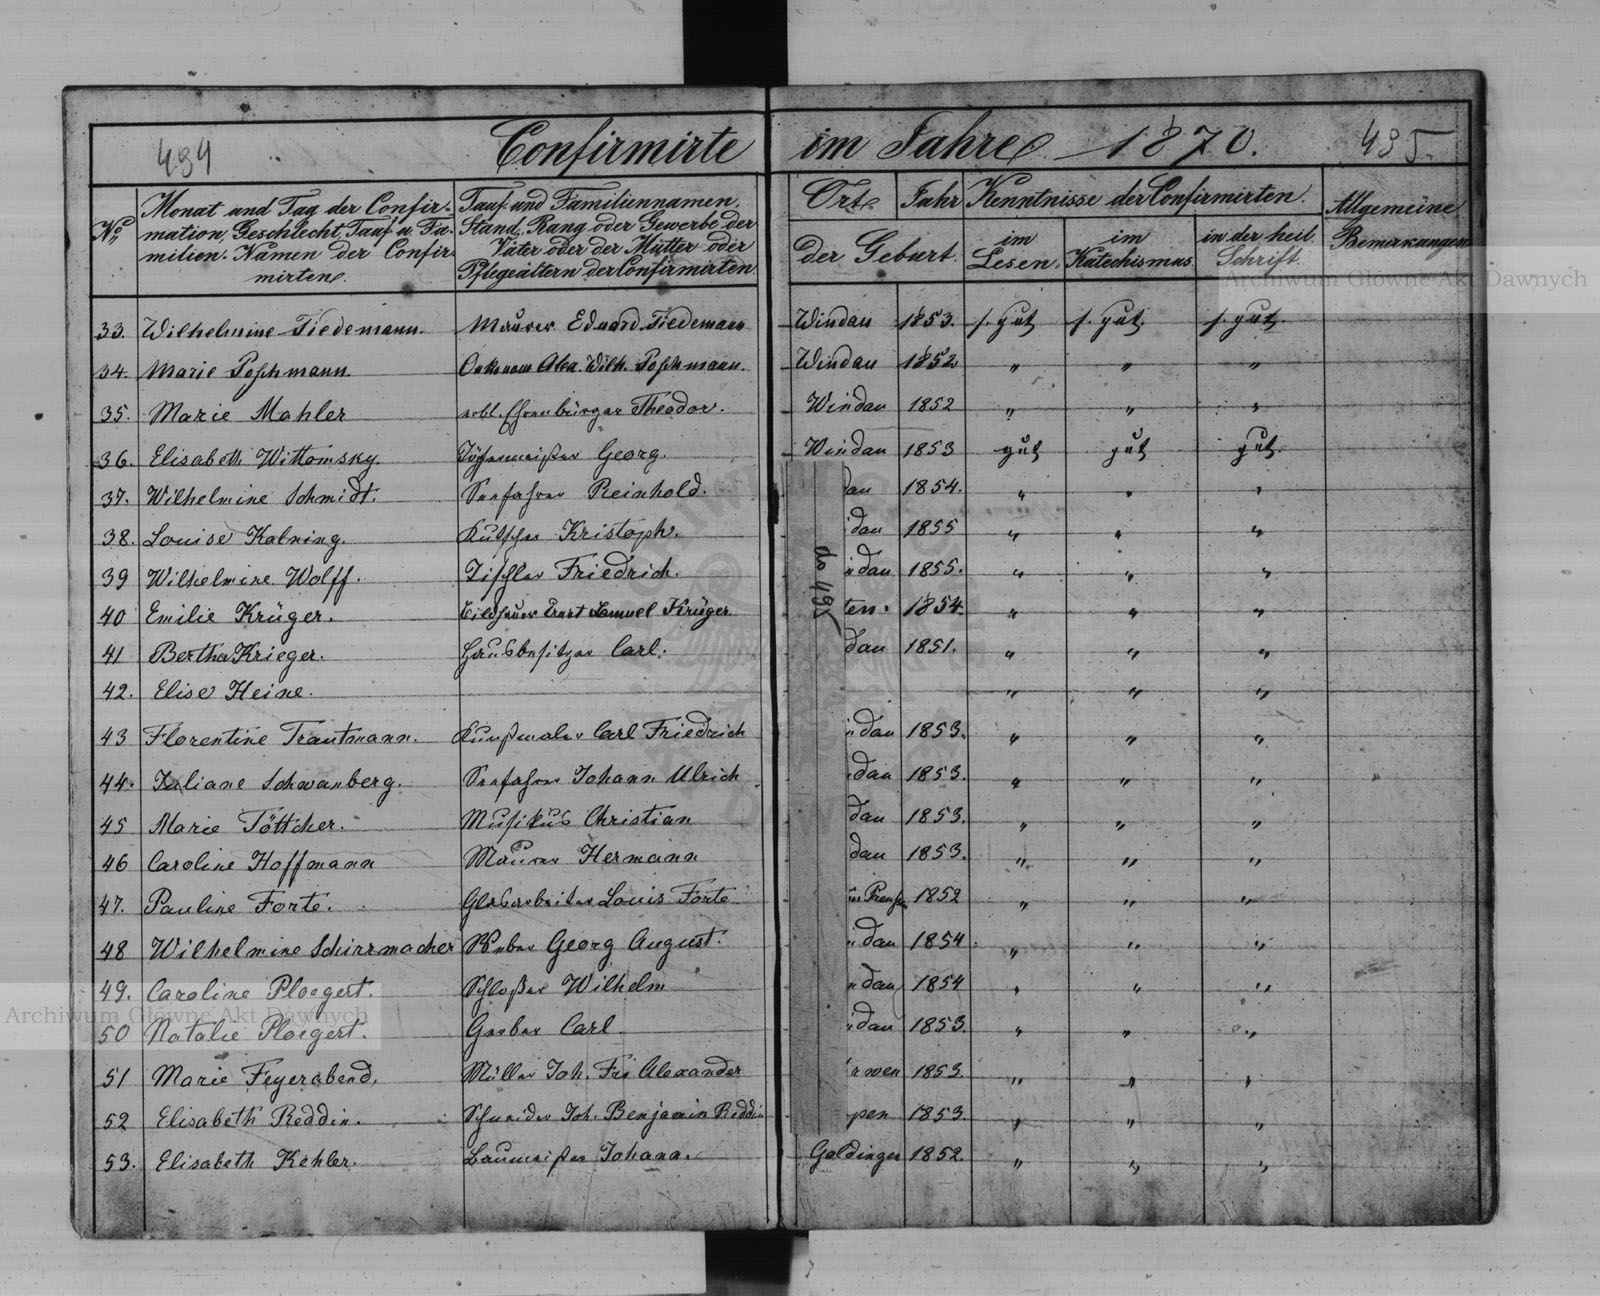 494
Confirmirte im Jahre 1870.
495
No
Monat und Tag der Confir-
mation, Geschlecht, Tauf u. Fa-
milien-Namen der Confir-
mirten.
Tauf und Familiennamen,
Stand, Rang oder Gewerbe der
Väter oder der Mütter oder
Pflegeältern der Confirmirten
Ort Jahr
der Geburt.
Kenntnisse der Confirmirten.
im
Lesen.
im
Katechismus
in der heil.
Schrift.
Allgemeine
Bemerkungen
33. Wilhelmine Tiedemann. Maurer Eduard Tiedemann Windau 1853. s. gut s. gut. s. gut.
34. Marie Poschmann. Oekonom Alex. Wilh. Poschmann. Windau 1852 " " "
35. Marie Mahler erbl. Ehrenbürger Theodor. Windau 1852 " " "
36. Elisabeth Wittomsky. Töpfermeister Georg. Windau 1853 gut gut gut.
37. Wilhelmine Schmidt. Seefahrer Reinhold. au 1854. " " "
38. Louise Kalning. Kutscher Kristoph. dau 1855 " " "
39 Wilhelmine Wolff. Tischler Friedrich. dau 1855. " " "
40 Emilie Krüger. Bildhauer Ernst Samuel Krüger. ten. 1854. " " "
41 Bertha Krieger. Hausbesitzer Carl. dau 1851. " " "
42. Elise Heine. " " "
43 Florentine Trautmann. Kunstmaler Carl Friedrich dau 1853. " " "
44. Juliane Schwanberg. Seefahrer Johann Ulrich dau 1853. " " "
45 Marie Töttcher. Musikus Christian dau 1853. " " "
46 Caroline Hoffmann Maurer Hermann dau 1853. " " "
47. Pauline Forte. Glasarbeiter Louis Forte. Preußen 1852 " " "
48 Wilhelmine Schirrmacher Weber Georg August. dau 1854 " " "
49. Caroline Ploegert. Schloßer Wilhelm dau 1854 " " "
50 Natalie Ploegert. Gerber Carl. dau 1853. " " "
51 Marie Feyerabend. Müller Joh. Fri Alexander wen 1853. " " "
52 Elisabeth Reddin. Schneider Joh. Benjamin Reddin pen 1853. " " "
53. Elisabeth Kehler. Baumeister Johann. Goldingen 1852. " " "
do 495
Archiwum Główne Akt Dawnych
Archiwum Główne Akt Dawnych